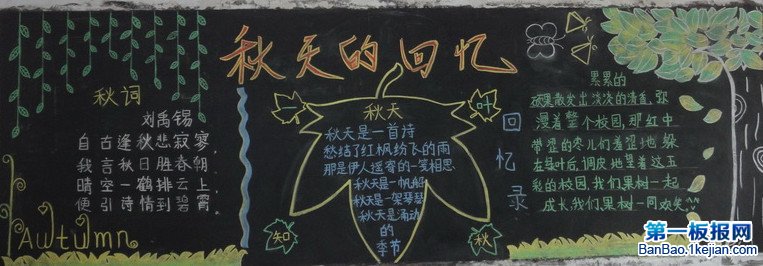 秋天的回忆
秋词
刘禹锡
自古逢秋悲寂寥,
我言秋日胜春朝
晴空一鹤排云上,
便引诗情到碧霄。
Autumn
一
叶
知
秋
秋天
秋天是一首诗
愁结了红枫纷飞的雨
那是伊人遥寄的一笺相思
秋天是一帆船
秋天是一架琴瑟
秋天是涌动
的
季节
回忆录
累累的
硕果散发出淡淡的清香,弥
漫着整个校园,那红中
带涩的枣儿们羞涩地躲
在绿叶后,调皮地望着这五
彩的校园,我们果树一起
成长,我们果树一同欢笑
第一板报网
BanBao.1kejian.com